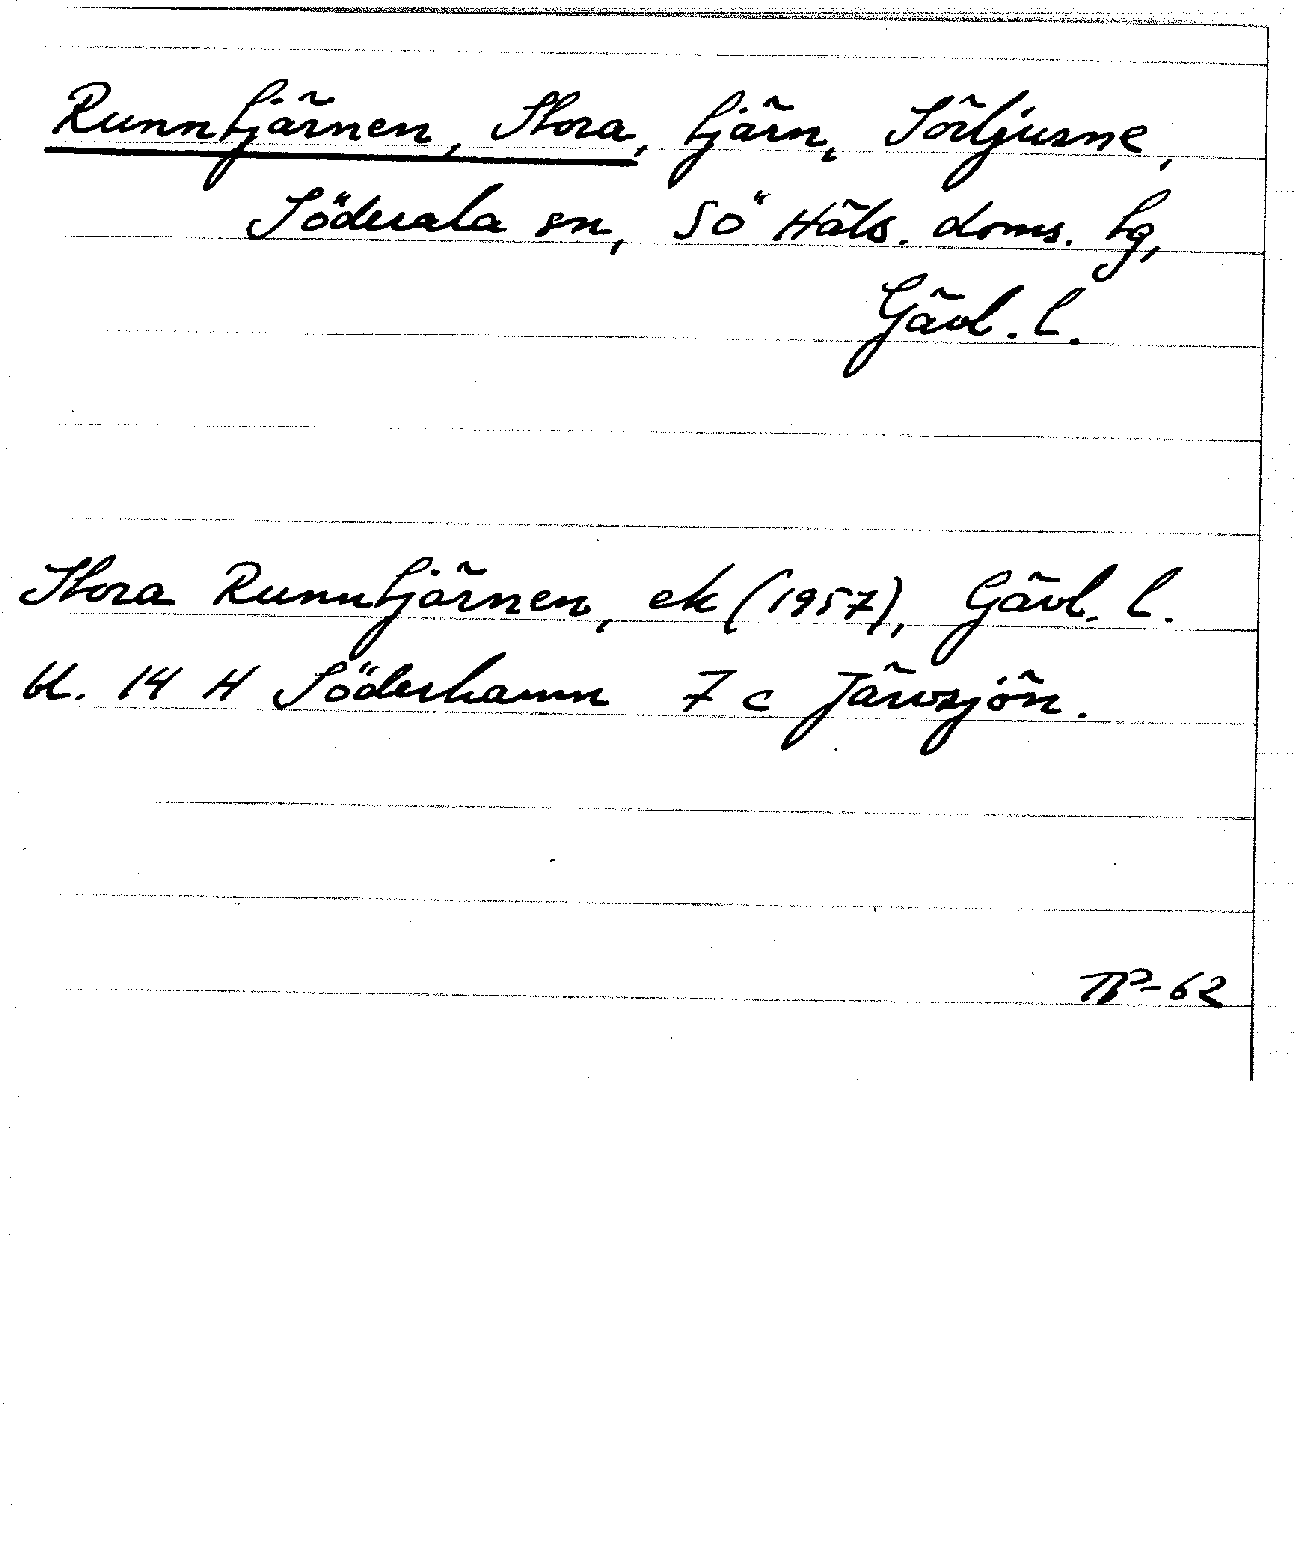 Runntjärnen, Stora, tjärn, Sörljusne,
Söderala sn, SÖ Häls. doms. tg,
Gävl. l.
Stora Runntjärnen, ek (1957), Gävl. l.
bl. 14 H Söderhamn 7 c Järvsjön.
TP-62